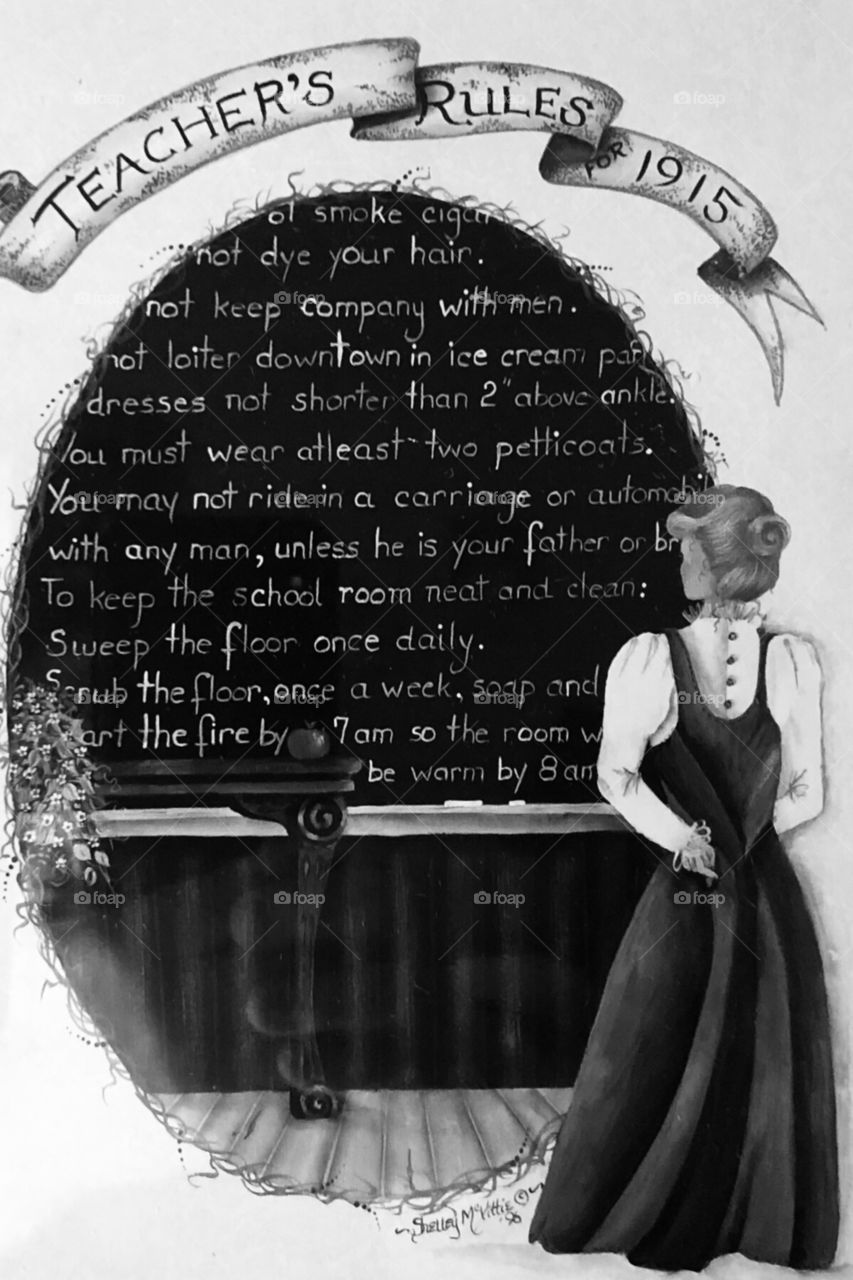 TEACHER'S RULES FOR 1915
ot smoke cigar
not dye your hair.
not keep company with men.
not loiter downtown in ice cream par
dresses not shorter than 2" above ankle.
You must wear atleast two petticoats.
You may not ride in a carriage or automobil
with any man, unless he is your father or br
To keep the school room neat and clean:
Sweep the floor once daily.
Scrub the floor, once a week, soap and
art the fire by 7am so the room w
be warm by 8am
Shelley McVittie © '96
foap